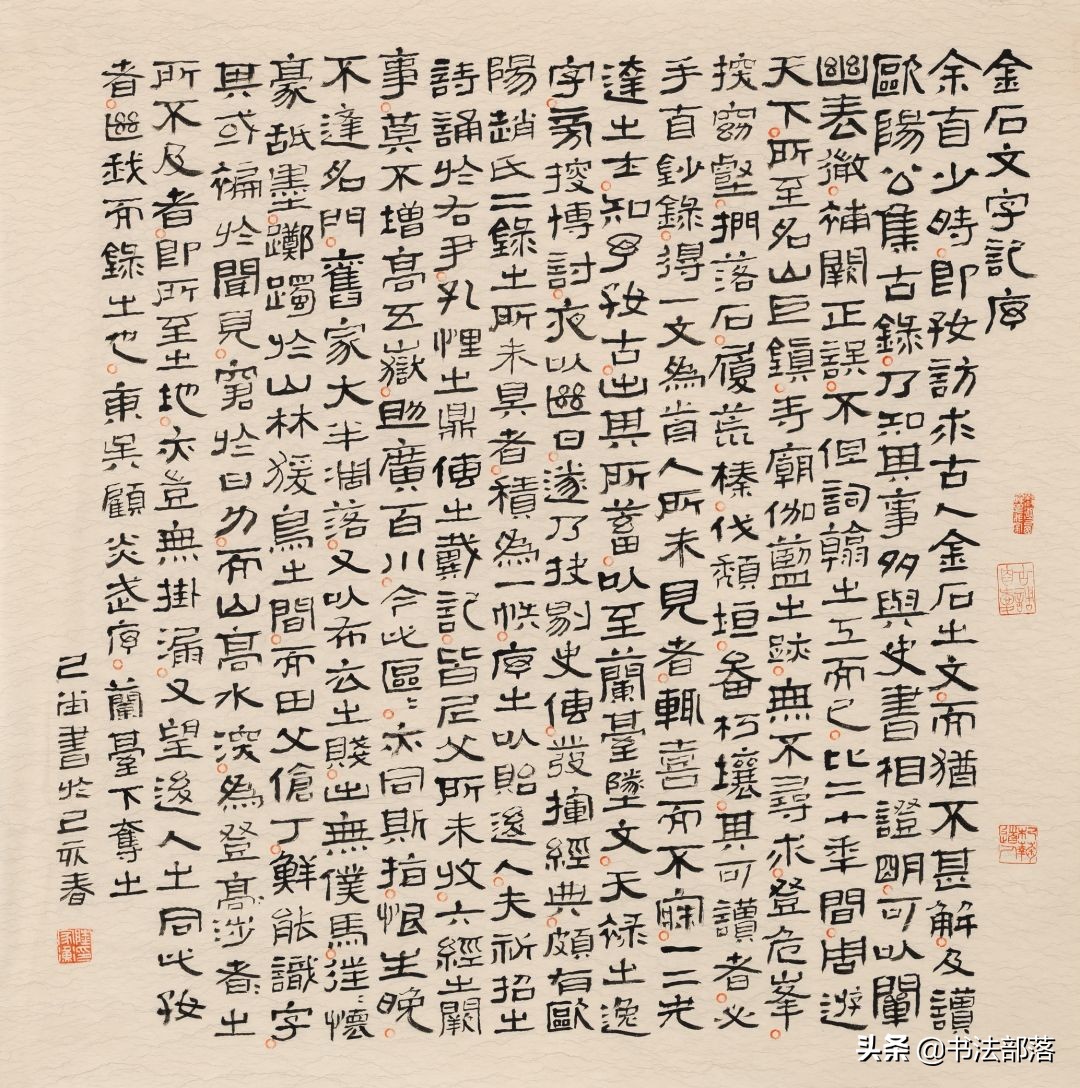 金石文字記序
余自少時即好訪求古人金石之文而猶不甚解及讀
歐陽公集古錄乃知其事多與史書相證明可以闡
幽表微補闕正誤不但詞翰之工而已比二十年間周遊
天下所至名山巨鎮寺廟伽藍之跡無不尋求登危峯
探窈壑捫落石履荒榛伐頹垣畚朽壤其可讀者必
手自鈔錄得一文為昔人所未見者輒喜而不寐一二先
達之士知予好古出其所蓄以至蘭臺墜文天祿之逸
字旁搜博討夜以繼日遂乃抉剔史傳發揮經典頗有歐
陽趙氏二錄之所未具者積為一帙序之以貽後人夫祈招之
詩誦於右尹孔悝之鼎傳之戴記皆尼父所未收六經之闕
事莫不增高五嶽助廣百川今此區〻亦同斯指恨生晚
不達名門舊家大半凋落又以布衣之賤出無僕馬往懷
豪舐墨躑躅於山林猨鳥之間而田父傖丁鮮能識字
其或褊於聞見窘於日力而山高水深為登高涉者之
所不及者即所至之地亦豈無掛漏又望後人之同此好
者繼我而錄之也東吳顧炎武序 蘭臺下奪之
書於己亥春
头条 @书法部落